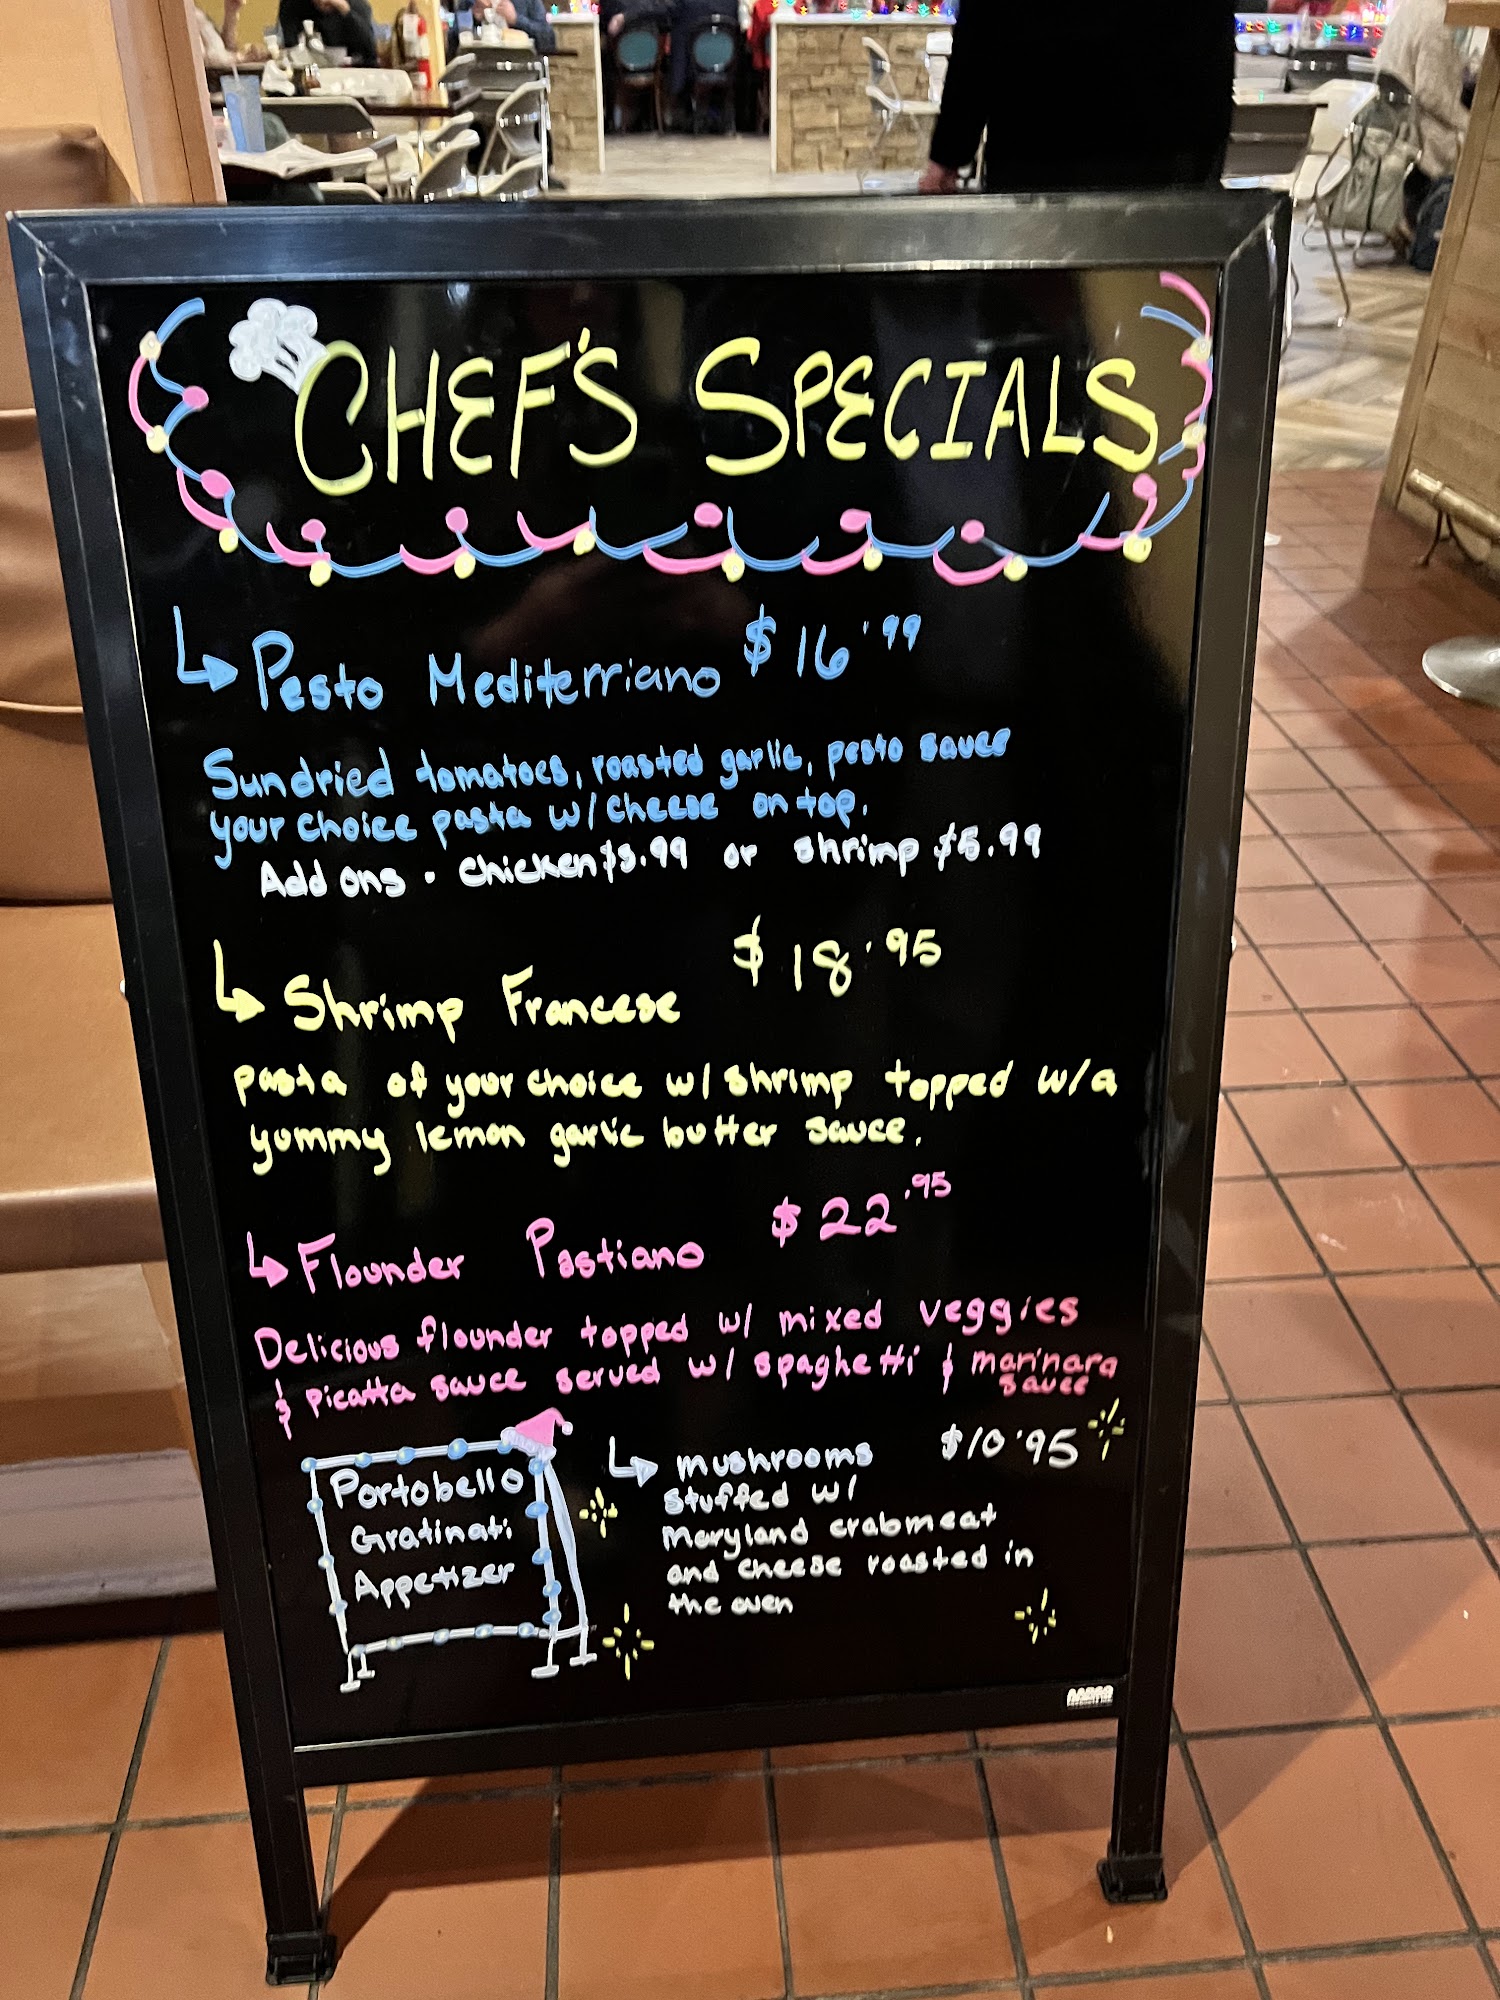 CHEF'S SPECIALS
Pesto Mediterriano $16.99
Sundried tomatoes, roasted garlic, pesto sauce
your choice pasta w/ cheese on top.
Add ons. chicken $3.99 or shrimp $5.99
Shrimp Francese $18.95
pasta of your choice w/ shrimp topped w/a
yummy lemon garlic butter sauce.
Flounder Pastiano $22.95
Delicious flounder topped w/ mixed veggies
& picatta sauce served w/ spaghetti & marinara
sauce
Portobello
Gratinati
Appetizer
mushrooms $10.95
stuffed w/
Maryland crabmeat
and cheese roasted in
the oven